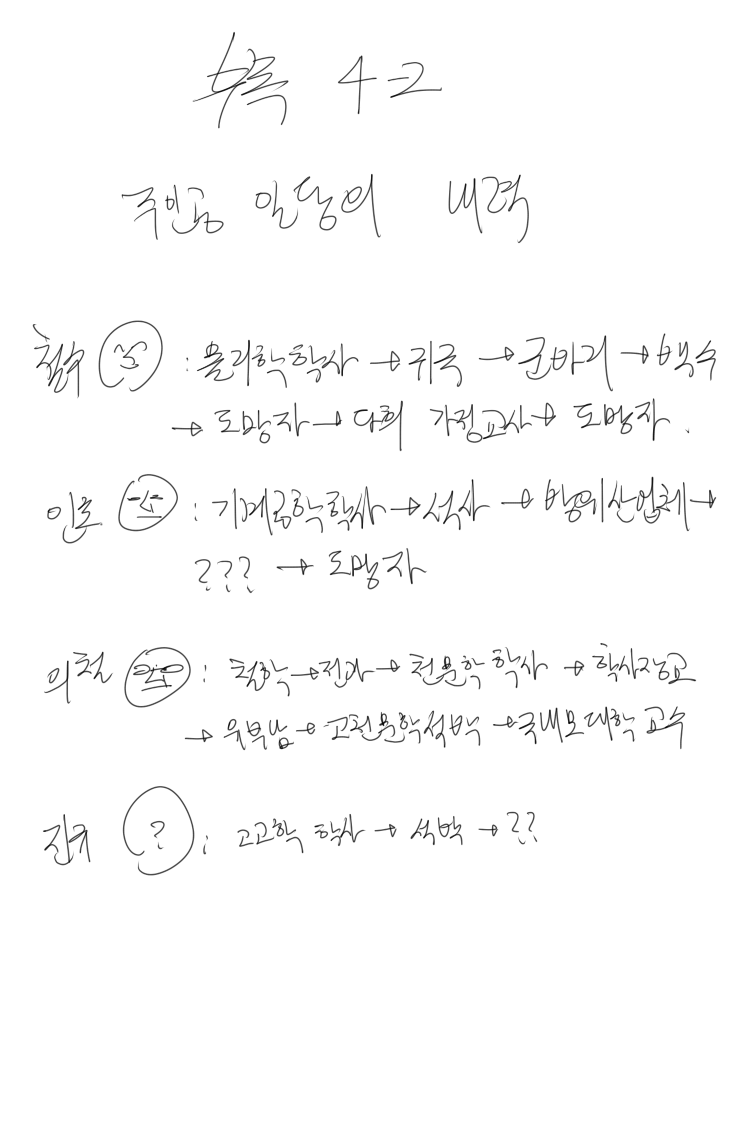 부록 4-2
주인공 일당의 내력
철수 : 물리학 학사 → 귀국 → 군바리 → 백수
→ 도망자 → 다희 가정교사 → 도망자.
인호 : 기계공학 학사 → 석사 → 방위산업체 →
??? → 도망자
의천 : 철학 → 전과 → 천문학 학사 → 학사장교
→ 유부남 → 고천문학 석박 → 국내 모 대학 교수
진규 ? : 고고학 학사 → 석박 → ??